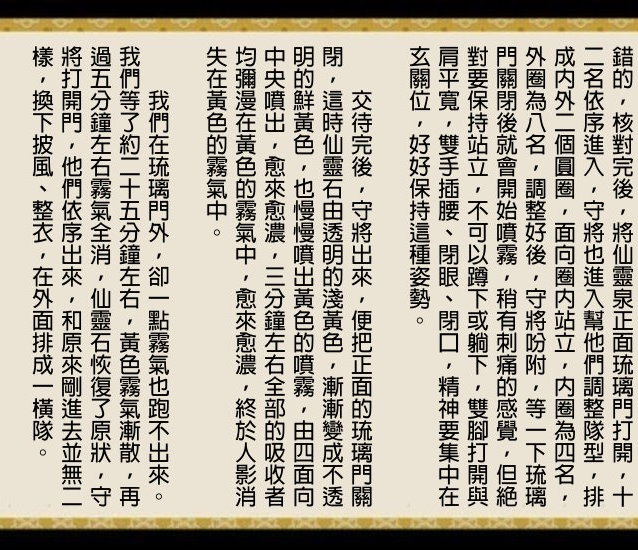 錯的，核對完後，將仙靈泉正面琉璃門打開，十
二名依序進入，守將也進入幫他們調整隊型，排
成內外二個圓圈，面向圈內站立，內圈為四名，
外圈為八名，調整好後，守將吩咐，等一下琉璃
門關閉後就會開始噴霧，稍有刺痛的感覺，但絕
對要保持站立，不可以蹲下或躺下，雙腳打開與
肩平寬，雙手插腰、閉眼、閉口，精神要集中在
玄關位，好好保持這種姿勢。
交待完後，守將出來，便把正面的琉璃門關
閉，這時仙靈石由透明的淺黃色，漸漸變成不透
明的鮮黃色，也慢慢噴出黃色的噴霧，由四面向
中央噴出，愈來愈濃，三分鐘左右全部的吸收者
均彌漫在黃色的霧氣中，愈來愈濃，終於人影消
失在黃色的霧氣中。
我們在琉璃門外，卻一點霧氣也跑不出來。
我們等了約二十五分鐘左右，黃色霧氣漸散，再
過五分鐘左右霧氣全消，仙靈石恢復了原狀，守
將打開門，他們依序出來，和原來剛進去並無二
樣，換下披風、整衣，在外面排成一橫隊。